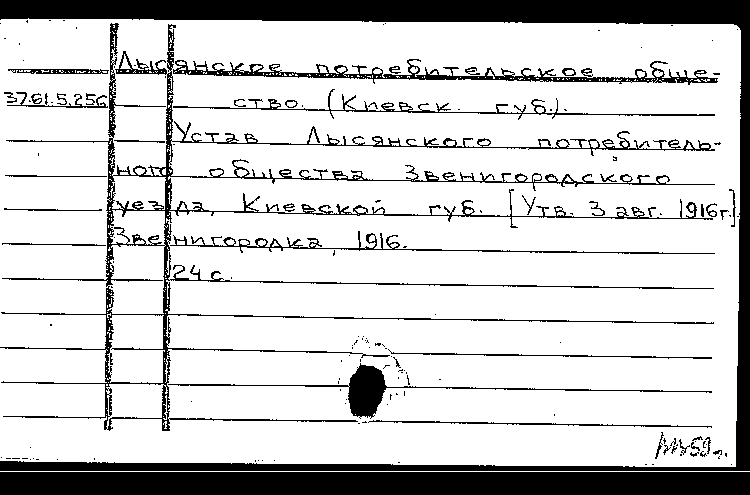 Лысянское потребительское обще-
37.61.5.256 ство. (Киевск. губ.).
Устав Лысянского потребитель-
ного общества Звенигородского
уезда, Киевской губ. [Утв. 3 авг. 1916г.]
Звенигородка, 1916.
24 с.
59 г.